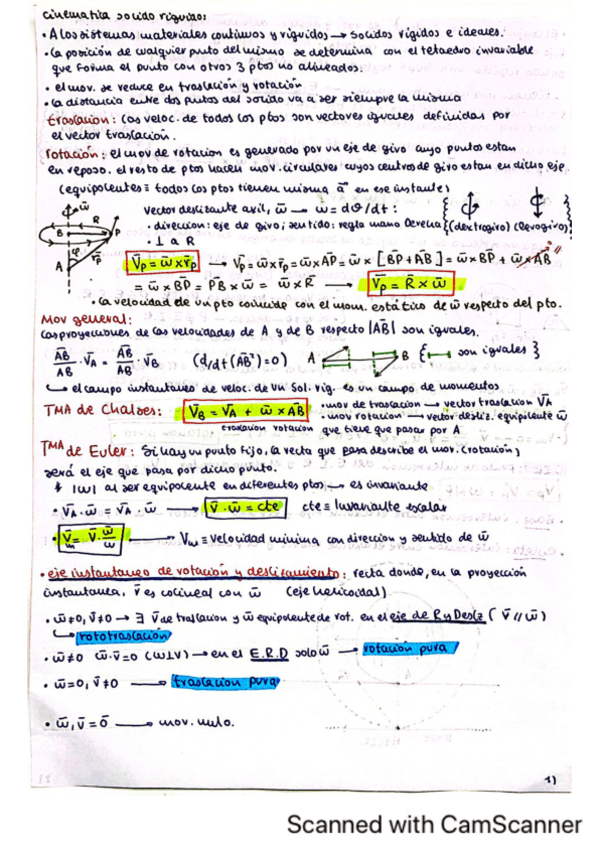 cinematica solido rigido:
• A los sistemas materiales continuos y rigidos → Solidos rígidos e ideales.
• La posición de cualquier punto del mismo se determina con el tetaedro invariable
que forma el punto con otros 3 ptos no alineados.
• el mov. se reduce en traslación y rotación
• La distancia entre dos puntos del solido va a ser siempre la misma
traslacion: las veloc. de todos los ptos son vectores iguales definidas por
el vector traslación.
rotación: el mov de rotacion es generado por un eje de giro cuyo puntos estan
en reposo. el resto de ptos hacen mov. circulares cuyos centros de giro estan en dicho eje
(equipolentes ≡ todos los ptos tienen misma a̅ en ese instante)
vector deslizante axil, ω̅ → ω̅ = dθ/dt :
• direccion: eje de giro; sentido: regla mano derecha {(dextrogiro) (levogiro)}
• ⊥ a R
ω̅
R
B
P
φ
r̅p
A
V̅p = ω̅ x r̅p → V̅p = ω̅ x r̅p = ω̅ x A̅P̅ = ω̅ x [B̅P̅ + A̅B̅] = ω̅ x B̅P̅ + ω̅ x A̅B̅ 0̅"
= ω̅ x B̅P̅ = P̅B̅ x ω̅ = ω̅ x R̅ → V̅p = R̅ x ω̅
• La velocidad de un pto coincide con el mom. estático de ω̅ respecto del pto.
Mov general:
Las proyecciones de las velocidades de A y de B respecto |AB| son iguales.
A̅B̅/AB · V̅A = A̅B̅/AB · V̅B (d/dt (A̅B̅²) = 0) A B { son iguales }
↳ el campo instantaneo de veloc. de un Sol. rig. es un campo de momentos
TMA de Chalses: V̅B = V̅A + ω̅ x A̅B̅ • mov de traslacion → vector traslacion V̅A
traslacion rotacion • mov rotacion → vector desliz. equipolente ω̅
que tiene que pasar por A
TMA de Euler: Si hay un punto fijo, la recta que pasa describe el mov. (rotación)
será el eje que pasa por dicho punto.
* |ω| al ser equipolente en diferentes ptos → es invariante
• V̅A · ω̅ = V̅A · ω̅ → V̅ · ω̅ = cte cte ≡ Invariante escalar
• V̅m = V̅ · ω̅/ω → Vm ≡ velocidad minima con direccion y sentido de ω̅
• eje instantaneo de rotación y deslizamiento: recta donde, en la proyección
instantanea, v̅ es colineal con ω̅ (eje helicoidal)
• ω̅≠0, V̅≠0 → ∃ V̅ de traslacion y ω̅ equipolente de rot. en el eje de R y Desliz (V̅ // ω̅)
↳ rototraslación
• ω̅≠0 ω̅·V̅=0 (ω⊥V) → en el E.R.D solo ω̅ → rotación pura
• ω̅=0, V̅≠0 → traslacion pura
• ω̅, V̅ = 0̅ → mov. nulo.
1)
Scanned with CamScanner